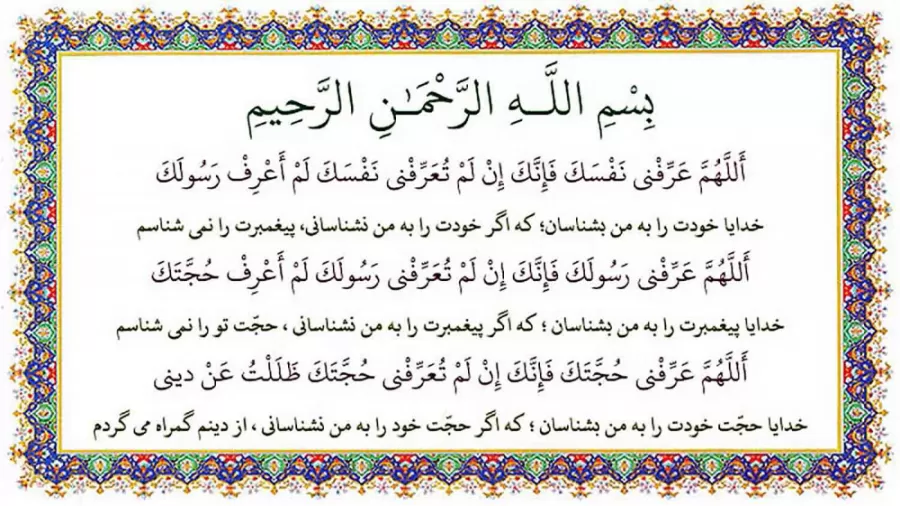 بِسْمِ اللَّـهِ الرَّحْمَـٰنِ الرَّحِيمِ
أَللَّهُمَّ عَرِّفْنی نَفْسَكَ فَإِنَّكَ إِنْ لَمْ تُعَرِّفْنی نَفْسَكَ لَمْ أَعْرِفْ رَسُولَكَ
خدایا خودت را به من بشناسان؛ که اگر خودت را به من نشناسانی، پیغمبرت را نمی شناسم
أَللَّهُمَّ عَرِّفْنی رَسُولَكَ فَإِنَّكَ إِنْ لَمْ تُعَرِّفْنی رَسُولَكَ لَمْ أَعْرِفْ حُجَّتَكَ
خدایا پیغمبرت را به من بشناسان ؛ که اگر پیغمبرت را به من نشناسانی ، حجّت تو را نمی شناسم
أَللَّهُمَّ عَرِّفْنی حُجَّتَكَ فَإِنَّكَ إِنْ لَمْ تُعَرِّفْنی حُجَّتَكَ ظَلَلْتُ عَنْ دینی
خدایا حجّت خودت را به من بشناسان ؛ که اگر حجّت خود را به من نشناسانی ، از دینم گمراه می گردم